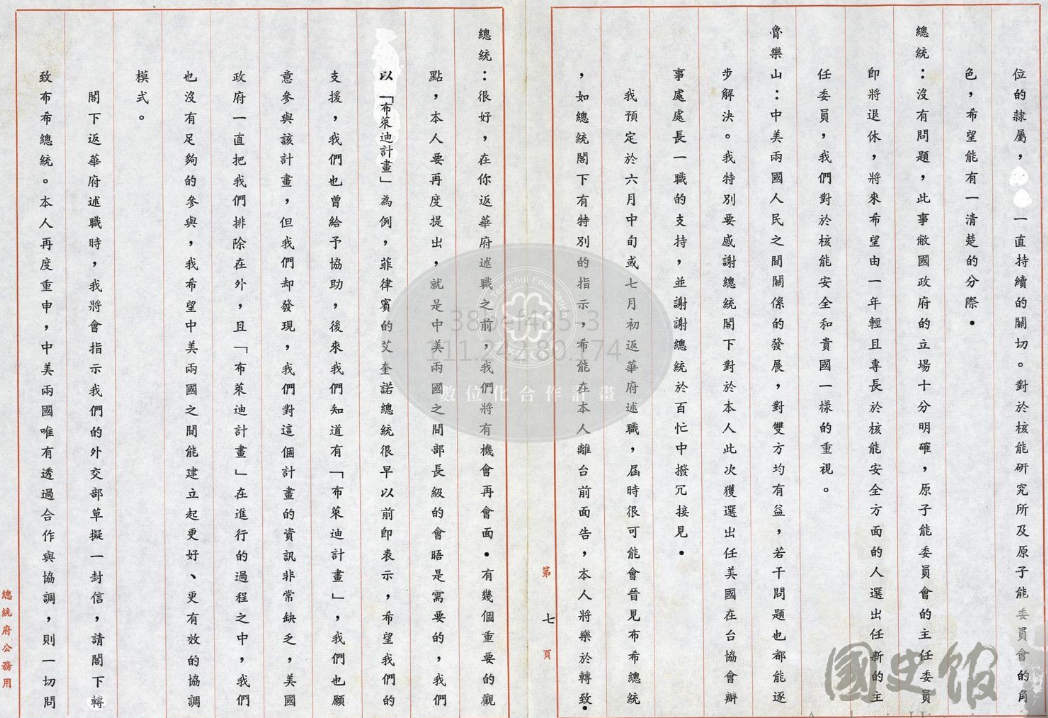 位的隸屬，一直持續的關切。對於核能研究所及原子能委員會的角
色，希望能有一清楚的分際。
總統：沒有問題，此事敝國政府的立場十分明確，原子能委員會的主任委員
即將退休，將來希望由一年輕且專長於核能安全方面的人選出任新的主
任委員，我們對於核能安全和貴國一樣的重視。
魯樂山：中美兩國人民之間關係的發展，對雙方均有益，若干問題也都能逐
步解決。我特別要感謝總統閣下對於本人此次獲選出任美國在台協會辦
事處處長一職的支持，並謝謝總統於百忙中撥冗接見。
我預定於六月中旬或七月初返華府述職，屆時很可能會晉見布希總統
，如總統閣下有特別的指示，希能在本人離台前面告，本人將樂於轉致。
第七頁
總統：很好，在你返華府述職之前，我們將有機會再會面。有幾個重要的觀
點，本人要再度提出，就是中美兩國之間部長級的會晤是需要的，我們
以「布萊迪計畫」為例，菲律賓的艾奎諾總統很早以前即表示，希望我們的
支援，我們也曾給予協助，後來我們知道有「布萊迪計畫」，我們也願
意參與該計畫，但我們却發現，我們對這個計畫的資訊非常缺乏，美國
政府一直把我們排除在外，且「布萊迪計畫」在進行的過程之中，我們
也沒有足夠的參與，我希望中美兩國之間能建立起更好、更有效的協調
模式。
閣下返華府述職時，我將會指示我們的外交部草擬一封信，請閣下轉
致布希總統。本人再度重申，中美兩國唯有透過合作與協調，則一切問
總統府公務用
138bef485-3
111.242.80.174
數位化合作計畫
國史館